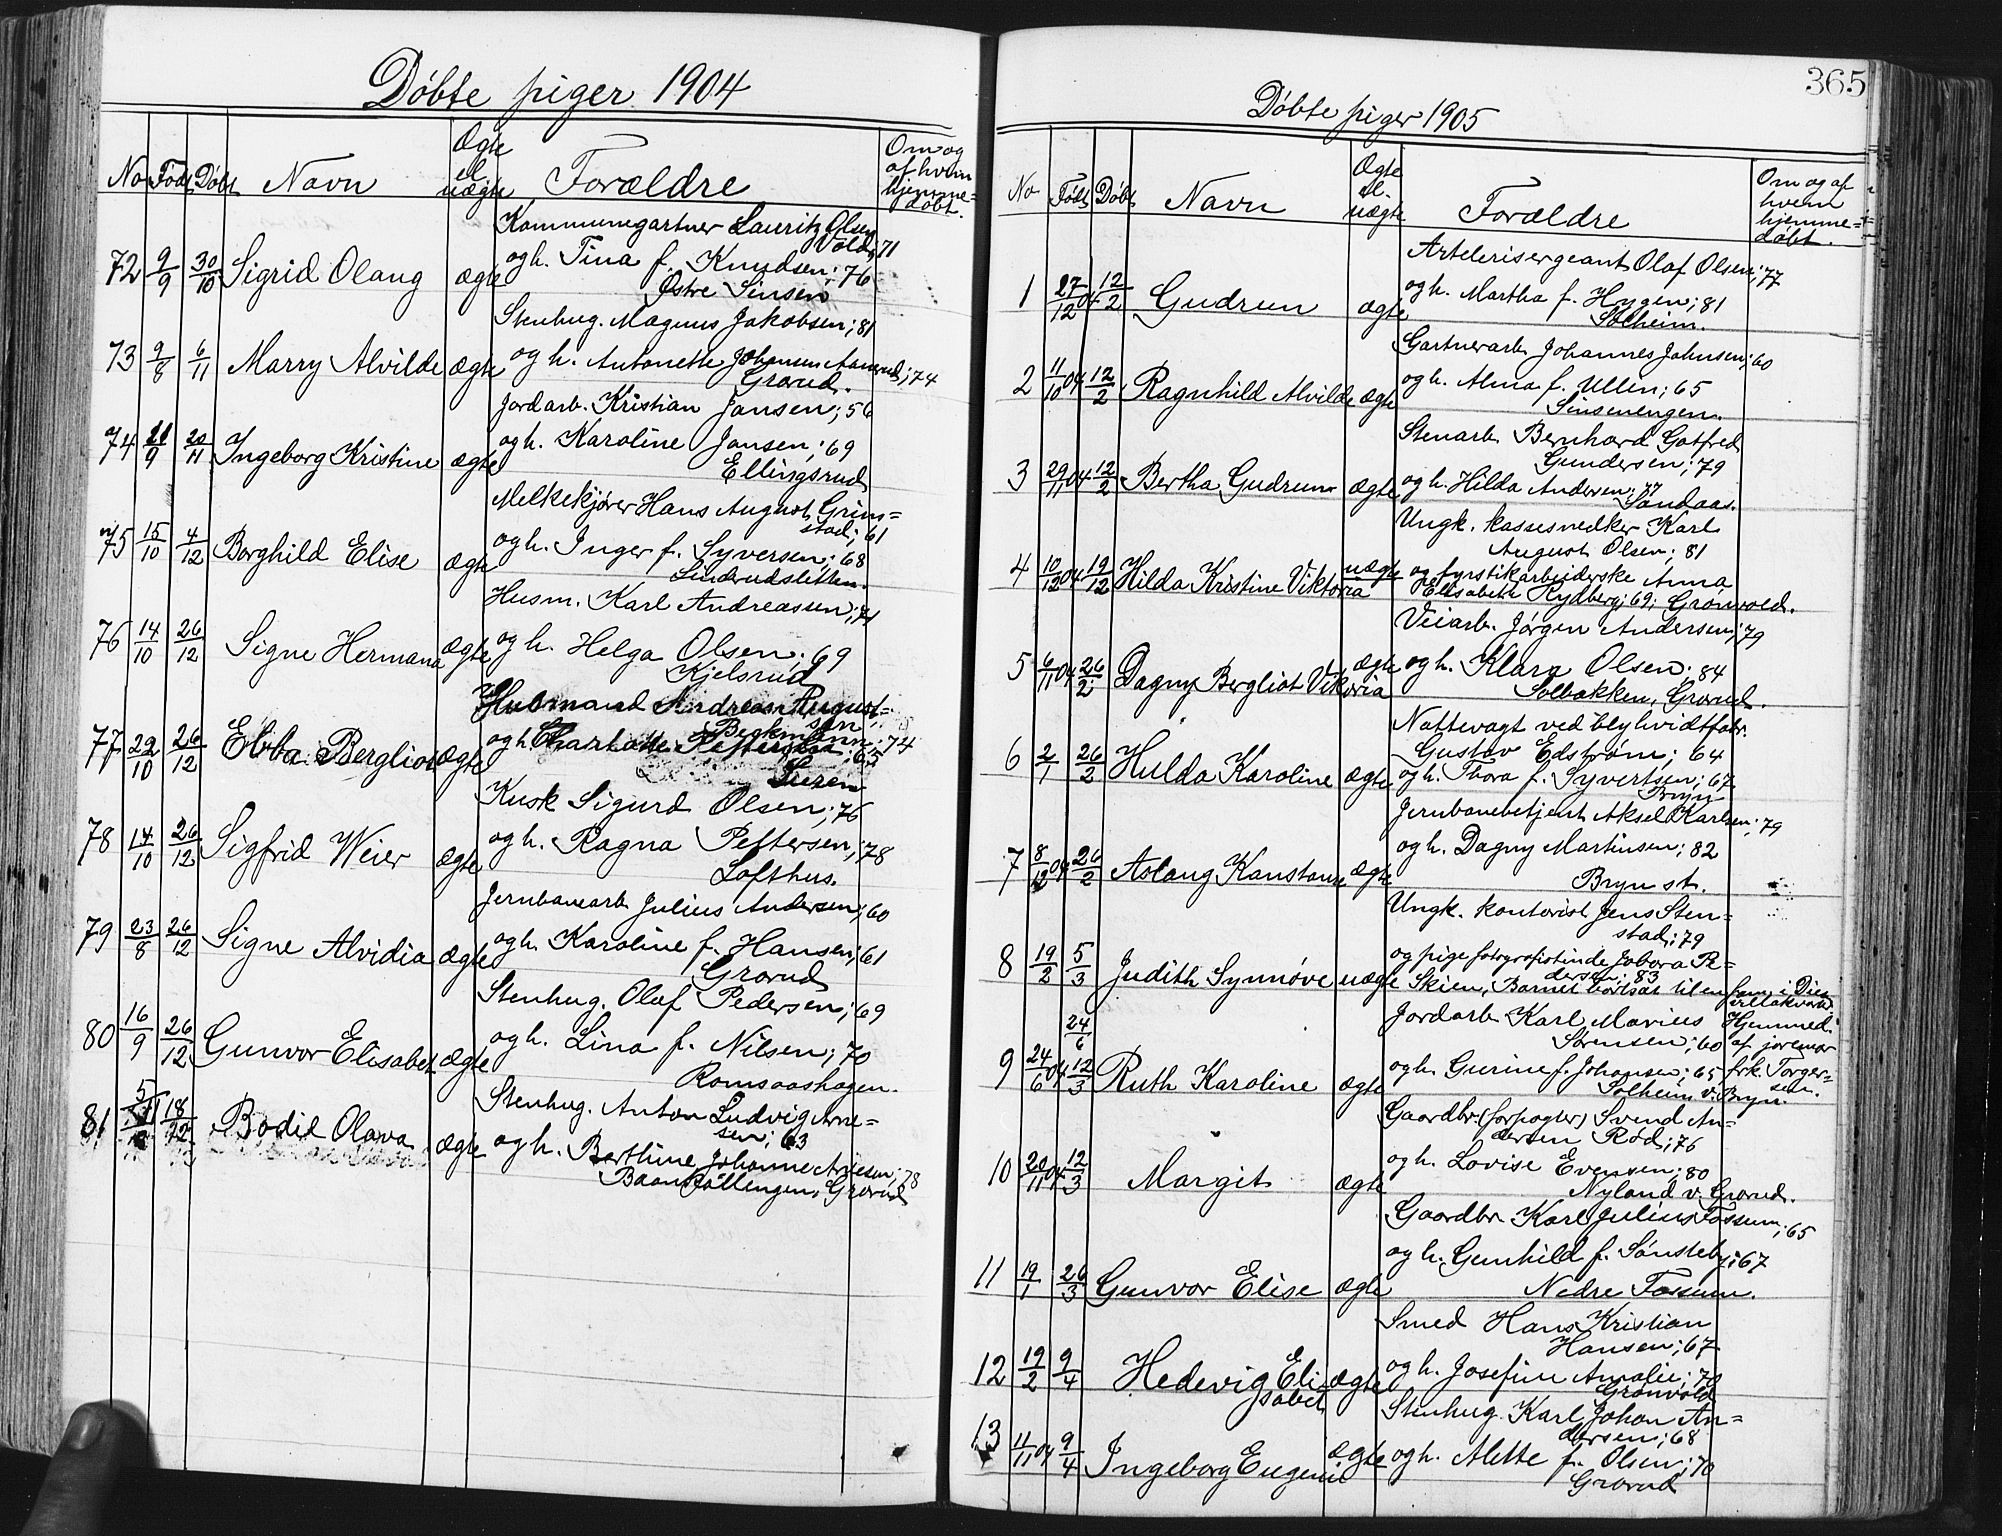 Døbte piger 1904
No Født Døbt Navn Ægte el uægte Forældre Om og af hvem hjemme=døbt.
Kommunegartner Lauritz Olsen
Vold; 71
72 9/9 30/10 Sigrid Olaug ægte og h. Tina f. Knudsen; 76
Østre Sinsen
Stenhug. Magnus Jakobsen; 81
73 9/8 6/11 Marry Alvilde ægte og h. Antonette Johansen; 74
Grorud.
Jordarb. Kristian Jansen; 56
74 21/9 20/11 Ingeborg Kristine ægte og h. Karoline Jansen; 69
Ellingsrud
Melkekjører Hans August Grim=
stad; 61
75 15/10 4/12 Borghild Elise ægte og h. Inger f. Syversen; 68
Linderudsletten.
Husm. Karl Andreassen; 71
76 14/10 26/12 Signe Hermana ægte og h. Helga Olsen; 69
Kjelsrud
Husmand Andreas August=
sen
Beckmann; 74
77 29/10 26/12 Ebba Bergliot ægte og h. Charlotte Pettersen; 65
Kusk Sigurd Olsen; 76
78 14/10 26/12 Sigfrid Weier ægte og h. Ragna Pettersen; 78
Lofthus.
Jernbanearb Julius Andersen; 60
79 23/8 26/12 Signe Alvidia ægte og h. Karoline f. Hansen; 61
Grorud
Stenhug. Olaf Pedersen; 69
80 16/9 26/12 Gunvor Elisabet ægte og h. Lina f. Nilsen; 70
Romsaashagen.
Stenhug. Anton Ludvig Arne=
sen; 63
81 5/ 18/12 Bodil Olava ægte og h. Berthine Johanne Arnesen; 78
Baankallengen, Grorud
365
Døbte piger 1905
No Født Døbt Navn Ægte el. uægte Forældre Om og af hvem hjemme=døbt.
Artelerisergeant Olaf Olsen; 77
1 27/12 04 12/2 Gudrun ægte og h. Martha f. Hygen; 81
Solheim.
Gartnerarb Johannes Johnsen; 60
2 11/10 04 12/2 Ragnhild Alvilde ægte og h. Alma f. Ullin; 65
Sinsenengen.
Stenarb Bernhard Gotfred
Gundersen; 79
3 29/11 04 12/2 Bertha Gudrun ægte og h. Hilda Andersen; 77
Sandaas.
Ungk. kassesnedker Karl
August Olsen; 81
4 10/12 04 19/12 Hilda Kristine Viktoria uægte og fyrstikarbejderske Anna
Elisabeth Rydberg; 69; Grönvold.
Veiarb. Jørgen Andersen; 79
5 6/11 04 26/2 Dagny Bergliot Viktoria ægte og h. Klara Olsen; 84
Solbakken, Grorud.
Nattevagt ved blyhvidtfabr.
Gustav Edstrøm; 64
6 2/1 26/2 Hulda Karoline ægte og h. Thora f. Syvertsen; 67
Bryn
Jernbanebetjent Aksel Karlsen; 79
7 8/12 04 26/2 Aslaug Konstanse ægte og h. Dagny Martinsen; 82
Bryn st.
Ungk. kontorist Jens Sten=
stad; 79
8 19/2 5/3 Judith Synnøve uægte og pige fotografistinde Jobora Pe=
dersen; 83
Skien, Barnet bortsat til en fam. i
Jordarb Karl Marius Hjemmed.
24/6 Sørensen; 60 af jormor
9 24/6 04 12/3 Ruth Karoline ægte og h. Gurine f. Johansen; 65 frk. Torger=
Solheim v. Bryn. sen.
Gaardbr. (forpagter) Svend An=
dersen Rød; 76
10 20/11 04 12/3 Margit ægte og h. Lovise Evensen; 80
Nyland v. Grorud.
Gaardbr. Karl Julius Fossum; 65
11 19/1 26/3 Gunvor Elise ægte og h. Gunhild f. Sønsteby; 67
Nedre Fossum.
Smed Hans Kristian
Hansen; 67
12 19/2 9/4 Hedevig Eli= ægte og h. Josefine Amalie; 70
sabet Grönvold
Stenhug. Karl Johan An=
dersen; 68
13 11/11 04 9/4 Ingeborg Eugenie ægte og h. Alette f. Olsen; 70
Grorud